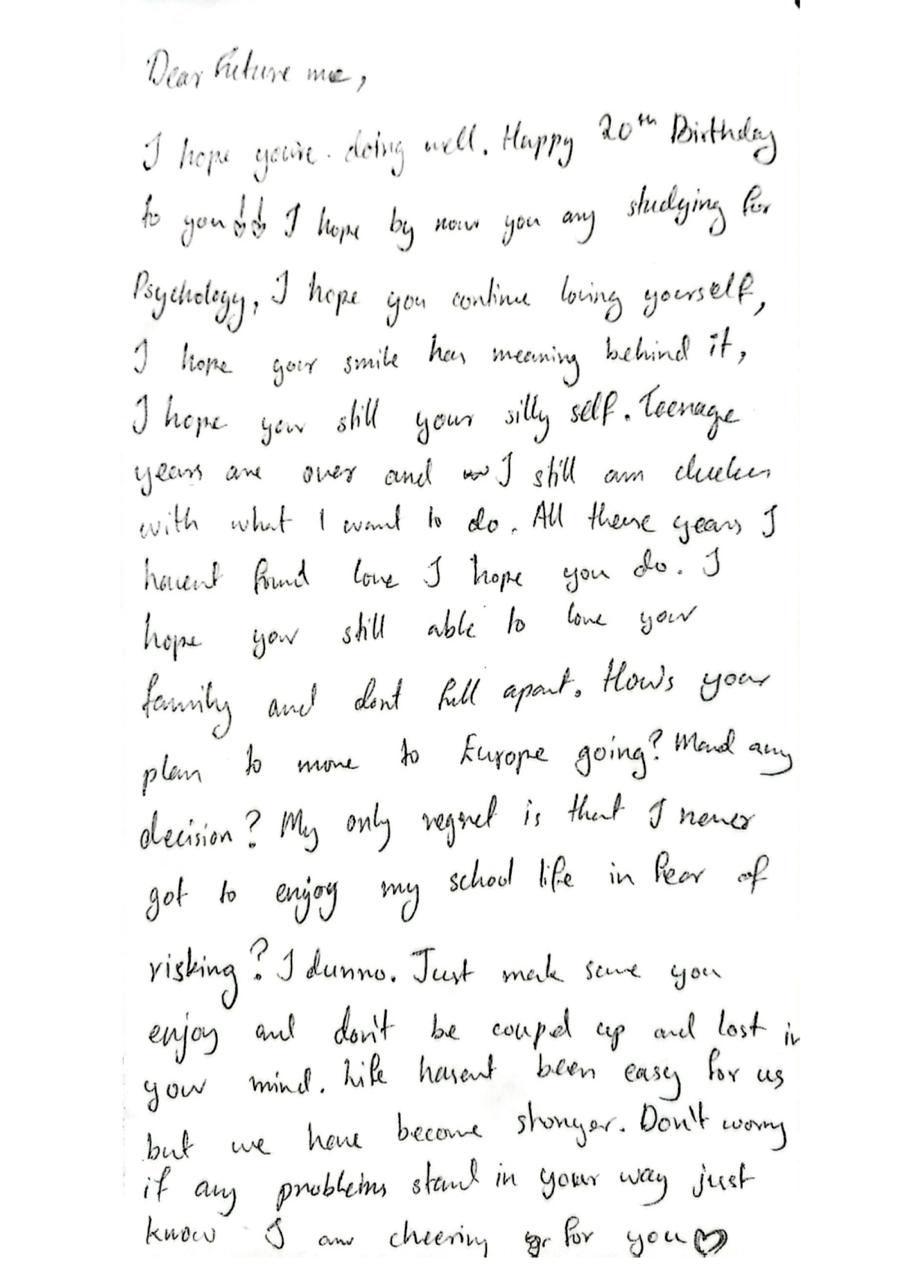 Dear Future me,
I hope you're doing well. Happy 20th Birthday
to you!! I hope by now you any studying for
Psychology, I hope you continue loving yourself,
I hope your smile has meaning behind it,
I hope your still your silly self. Teenage
years are over and I still am
with what I want to do. All these years I
havent found love I hope you do. I
hope your still able to love your
family and dont fall apart. How's your
plan to move to Europe going? Mend any
decision? My only regret is that I never
got to enjoy my school life in fear of
risking? I dunno. Just mak sure you
enjoy and don't be couped up and lost in
your mind. Life hasent been easy for us
but we have become stronger. Don't worry
if any problems stand in your way just
know I am cheering for you♡